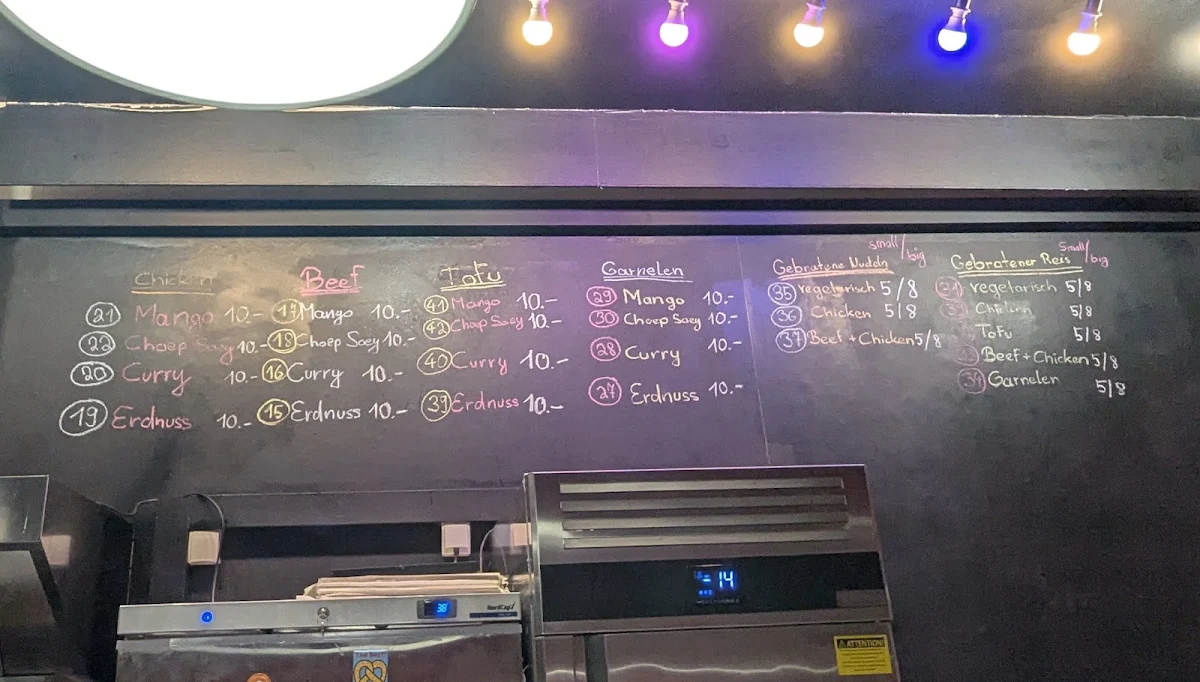 Chicken
21 Mango 10.-
22 Choep Soey 10.-
20 Curry 10.-
19 Erdnuss 10.-
Beef
17 Mango 10.-
18 Choep Soey 10.-
16 Curry 10.-
15 Erdnuss 10.-
Tofu
41 Mango 10.-
42 Choep Soey 10.-
40 Curry 10.-
39 Erdnuss 10.-
Garnelen
29 Mango 10.-
30 Choep Soey 10.-
28 Curry 10.-
27 Erdnuss 10.-
small/big
Gebratene Nudeln
35 vegetarisch 5/8
36 Chicken 5/8
37 Beef + Chicken 5/8
small/big
Gebratener Reis
vegetarisch 5/8
Chicken 5/8
Tofu 5/8
Beef + Chicken 5/8
34 Garnelen 5/8
38
NordCap
-14
ATTENTION!